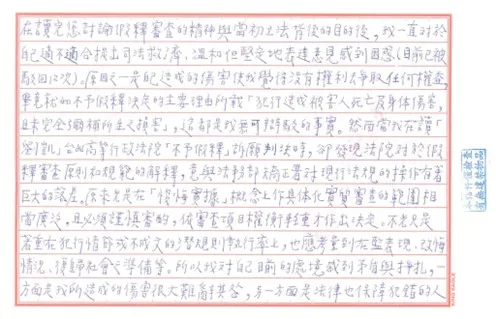 在讀完您討論假釋審查的精神與當初立法背後的目的後,我一直對於
自己適不適合提出司法救濟、溫和但堅定地表達意見感到困惑(目前已被
駁回12次)。原因之一是自己造成的傷害使我覺得沒有權利去爭取任何權益,
畢竟就如不予假釋決定的主要理由所載「犯行造成被害人死亡及身體傷害,
且未完全彌補所生之損害」,這都是我無可辯駁的事實。然而當我在讀「
台北高等行政法院「不予假釋」訴願判決時,卻發現法院對於假
釋審查原則和規範的解釋,竟與法務部矯正署對現行法規的操作有著
巨大的落差。原來光是在「悛悔實據」概念上作具體化實質審查的範圍相
當廣泛,且必須謹慎審酌,依審查項目權衡輕重才作出決定。不光只是
著重在犯行情節或不成文的潛規則執行率上,也應考量到在監表現、改悔
情況、復歸社會之準備等。所以我對自己目前的處境感到矛盾與掙扎,一
方面是我所造成的傷害很大難辭其咎,另一方面是法律也保障犯錯的人